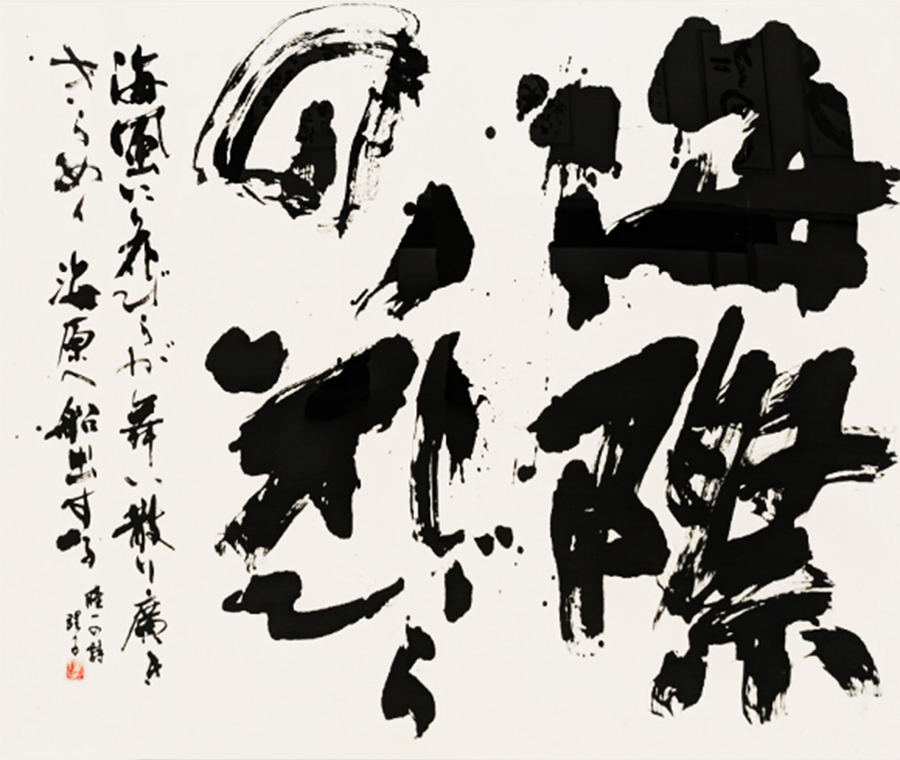 海際
の花びら
海風に花びらが舞い散り廣き
きらめく海原へ船出する
陸一の詩